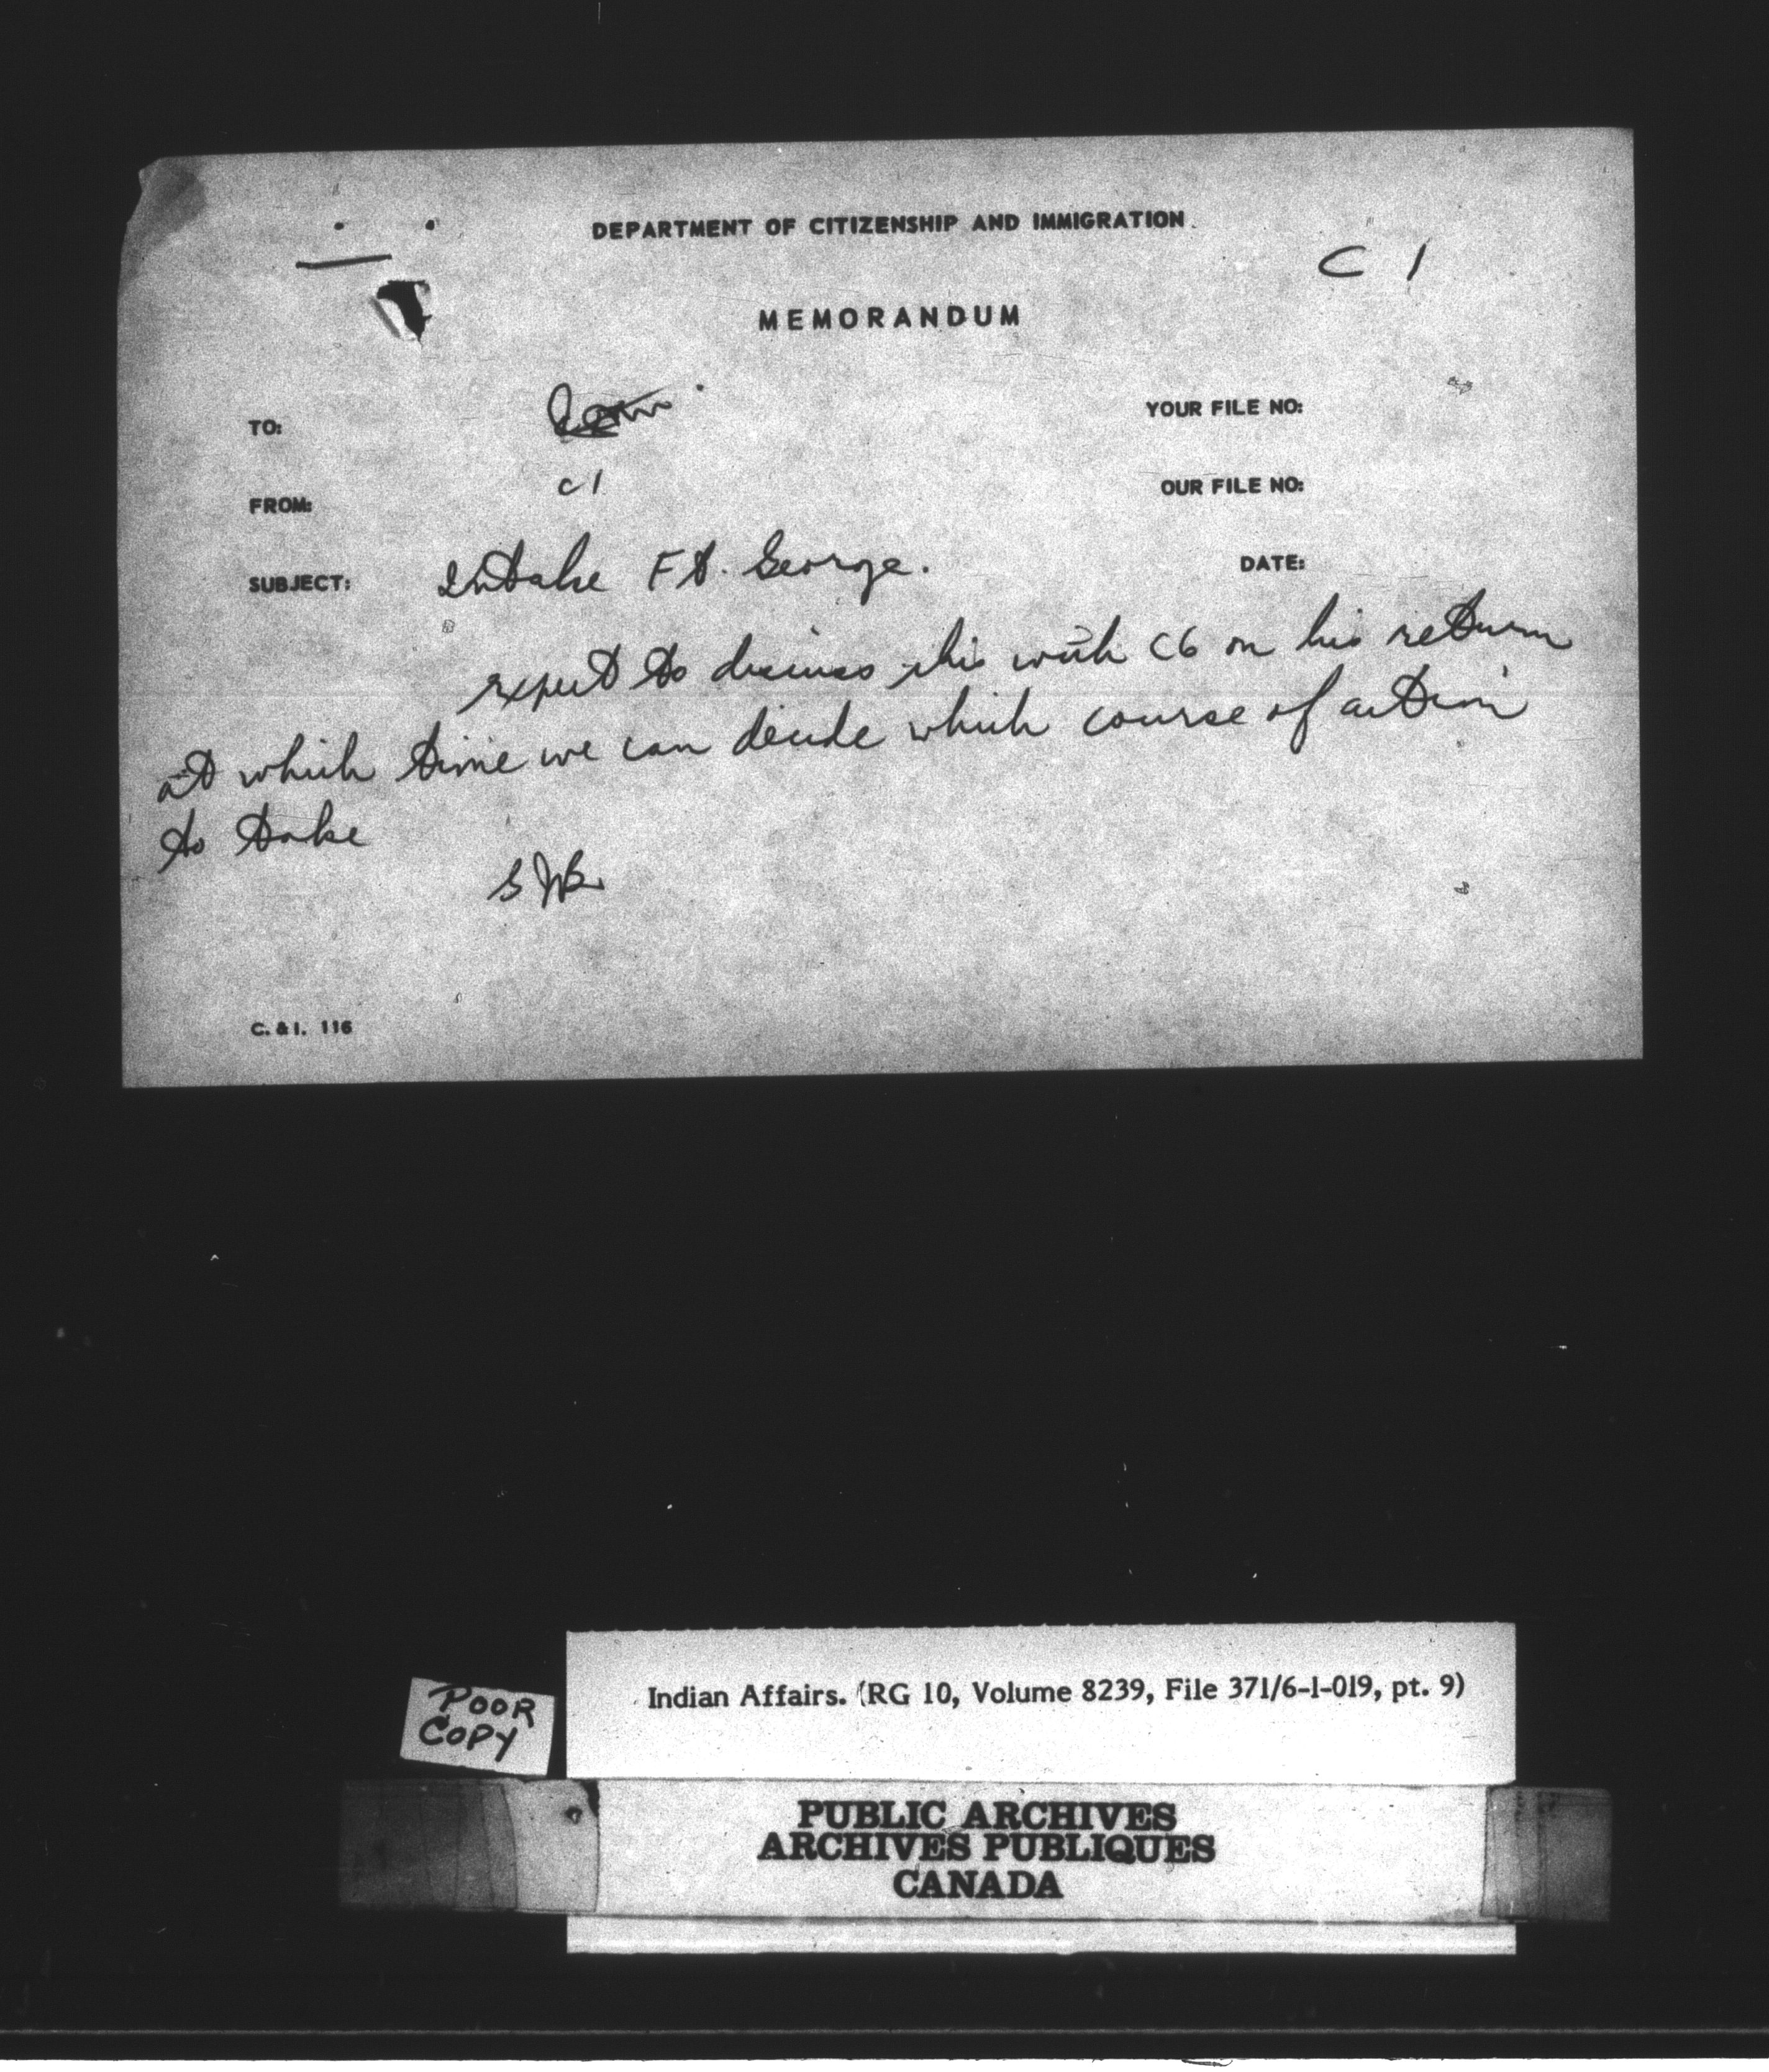 DEPARTMENT OF CITIZENSHIP AND IMMIGRATION
C 1
MEMORANDUM
TO:
YOUR FILE NO:
FROM: C1
OUR FILE NO:
SUBJECT: Intake Ft. George.
DATE:
expect to discuss this with C6 on his return
at which time we can decide which course of action
to take
C. & I. 116
POOR
COPY
Indian Affairs. (RG 10, Volume 8239, File 371/6-1-019, pt. 9)
PUBLIC ARCHIVES
ARCHIVES PUBLIQUES
CANADA